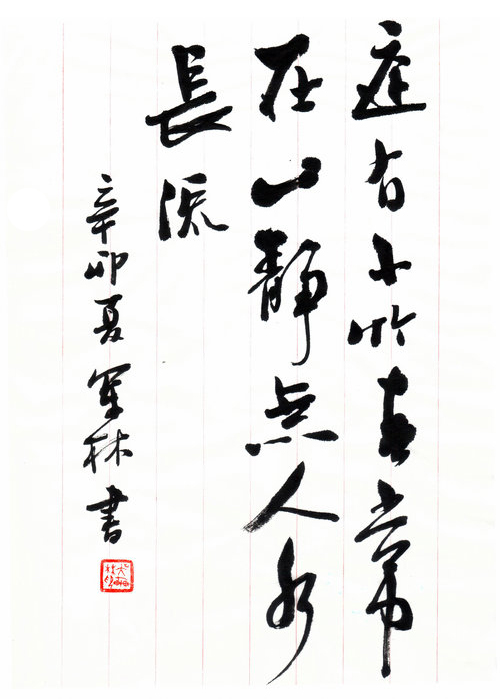 庭有小竹春常
在山静無人水
長流
辛卯夏军林書